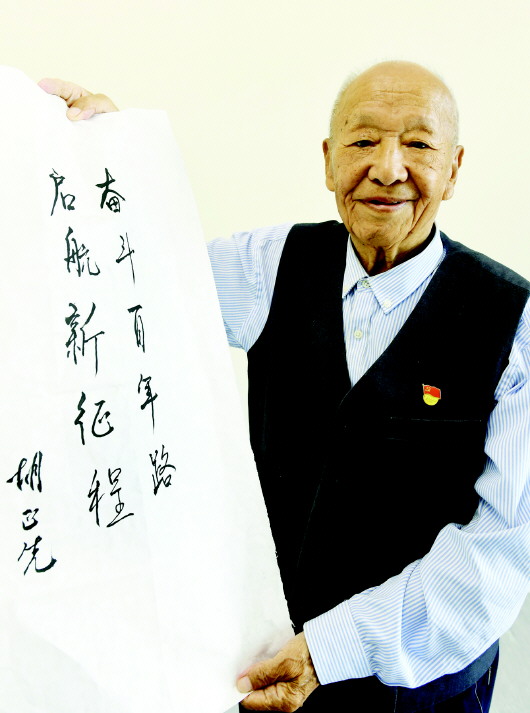 奋斗百年路
启航新征程
胡正先